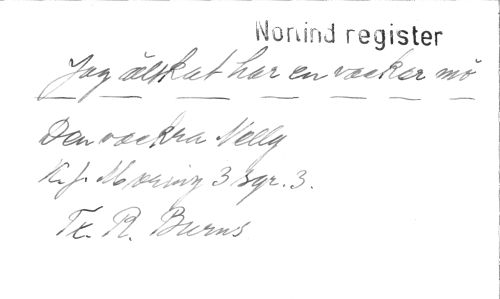 Norlind register
Jag älskat har en vacker mö
Den vackra Nelly
K.f. Moring 3 sgr. 3.
Tx. R. Burns